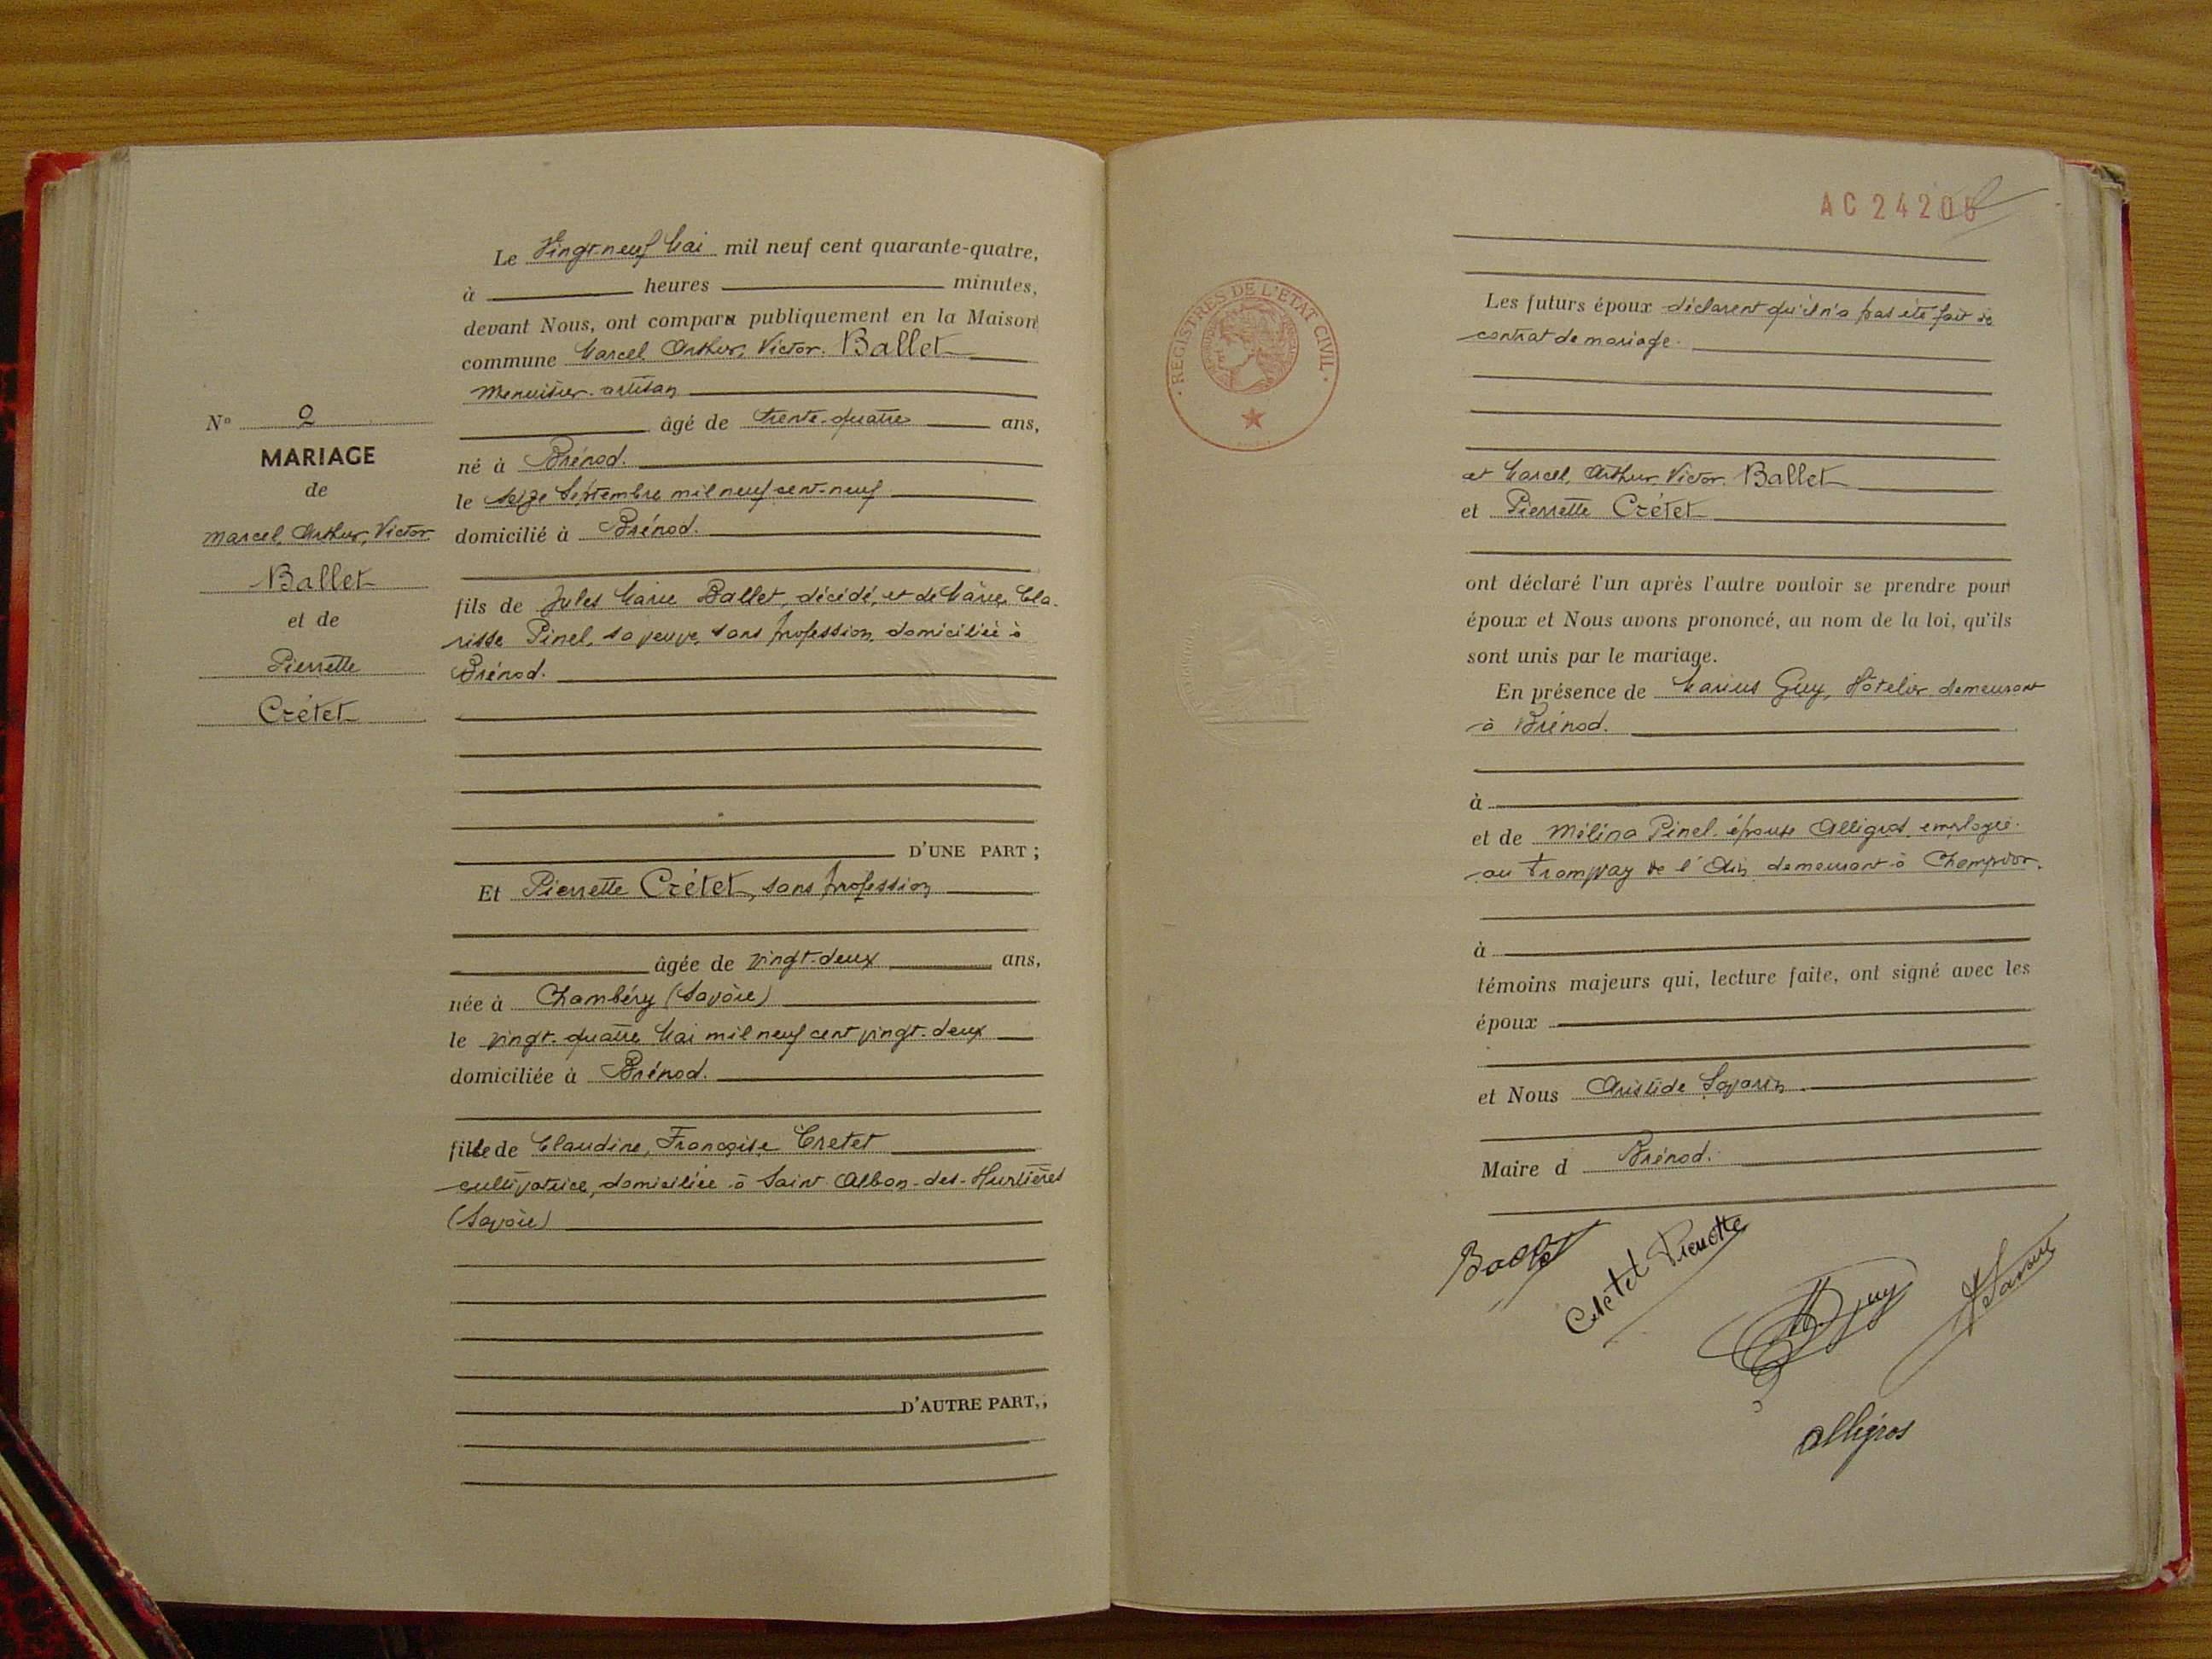 Le Vingt-neuf Mai mil neuf cent quarante-quatre,
à heures minutes,
devant Nous, ont comparu publiquement en la Maison
commune Marcel, Arthur, Victor. Ballet
Menuisier-artisan
âgé de trente-quatre ans,
né à Brénod.
le seize Septembre mil neuf cent-neuf
domicilié à Brénod.
fils de Jules Marie Ballet, décédé, et de Marie, Cla-
risse Pinel, sa veuve, sans profession, domiciliée à
Brénod.
D'UNE PART ;
Et Pierrette Crétet, sans profession
âgée de vingt-deux ans,
née à Chambéry (Savoie)
le vingt-quatre Mai mil neuf cent vingt-deux
domiciliée à Brénod.
fille de Claudine, Françoise Cretet
cultivatrice, domiciliée à Saint Alban-des-Hurtières
(Savoie)
D'AUTRE PART,;
N° 2
MARIAGE
de
Marcel, Arthur, Victor.
Ballet
et de
Pierrette
Crétet
AC 24206
REGISTRES DE L'ÉTAT CIVIL
Les futurs époux déclarent qu'il n'a pas été fait de
contrat de mariage.
et Marcel, Arthur, Victor. Ballet
et Pierrette Crétet
ont déclaré l'un après l'autre vouloir se prendre pour
époux et Nous avons prononcé, au nom de la loi, qu'ils
sont unis par le mariage.
En présence de Marius Guy, Hôtelier demeurant
à Brénod.
à
et de Mélina Pinel, épouse Alligros, employée
au tramway de l'Ain demeurant à Champdor.
à
témoins majeurs qui, lecture faite, ont signé avec les
époux
et Nous Aristide Savarin.
Maire d Brénod.
Ballet
Crétet Pierrette
M. Guy
Savarin
Alligros